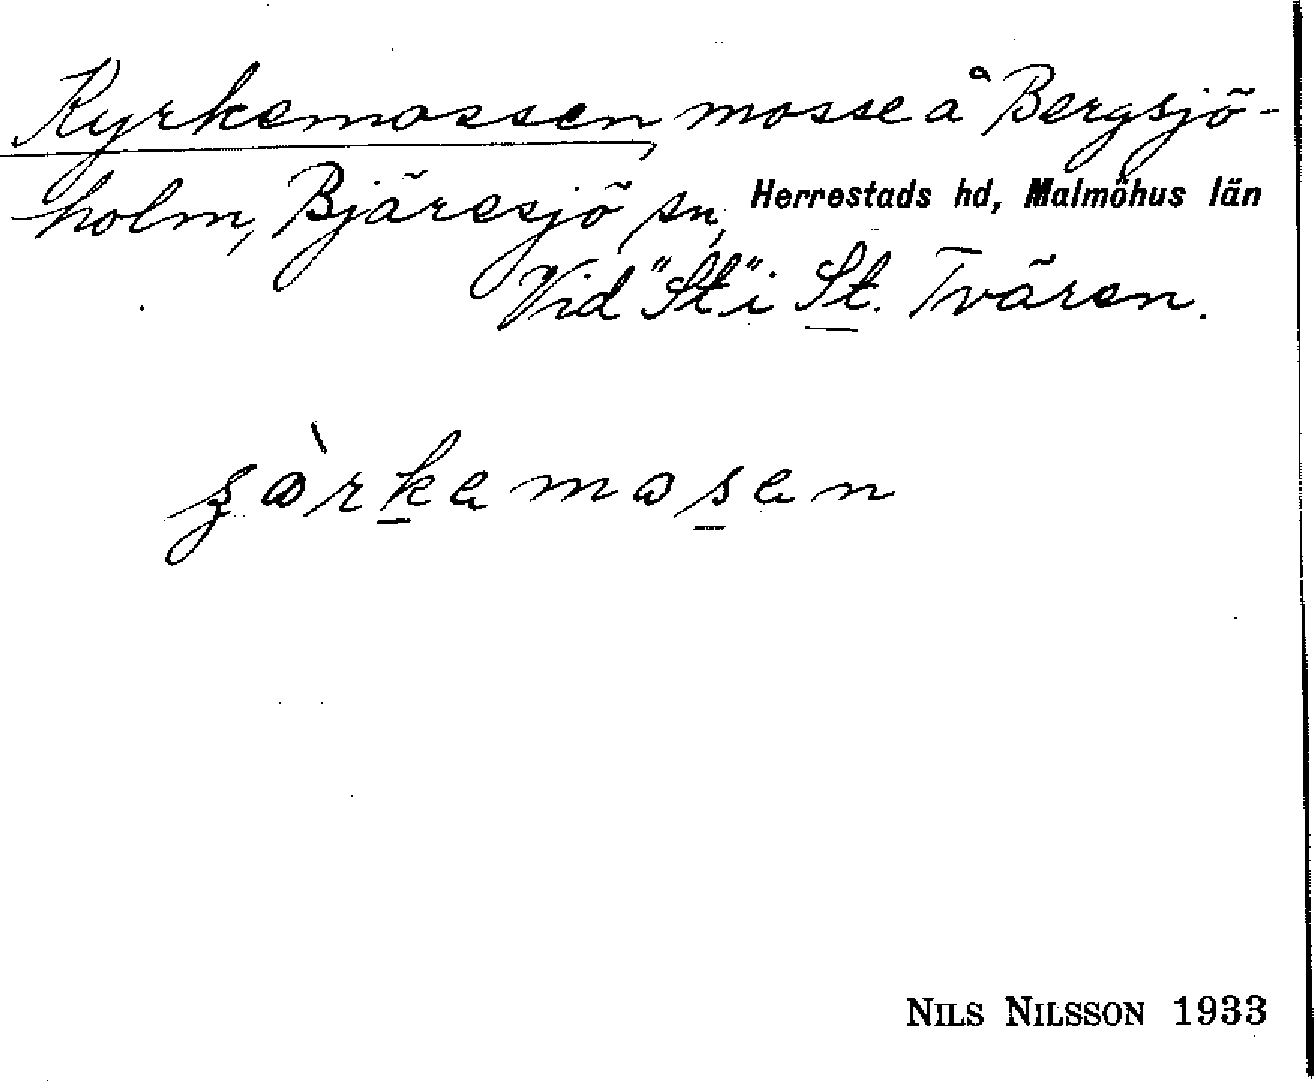 Kyrkemossen, mosse å Bergsjö-
holm, Bjäresjö sn, Herrestads hd, Malmöhus län
Vid "St" i St. Tvären.
NILS NILSSON 1933